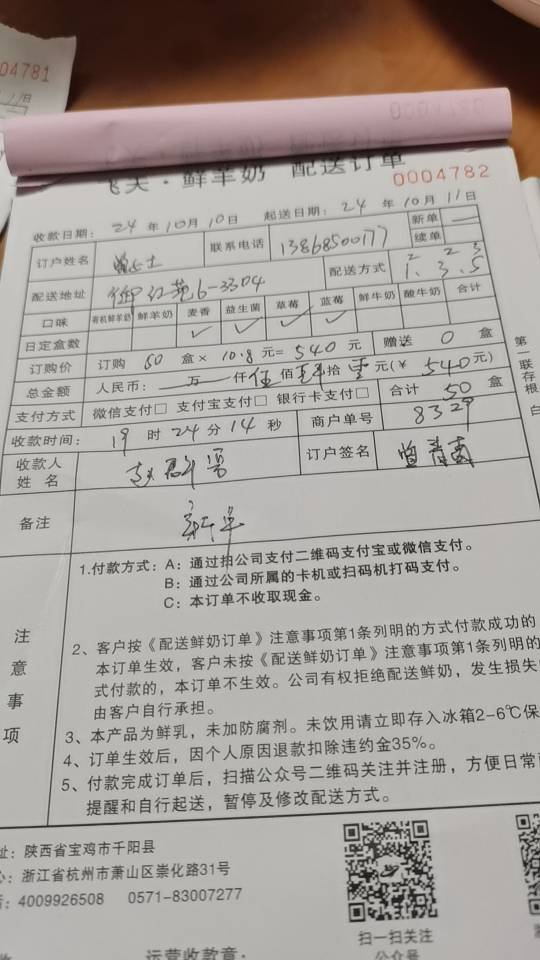 04781
飞天·鲜羊奶 配送订单
0004782
收款日期：24年10月10日 起送日期：24年10月11日
订户姓名 曾女士 联系电话 13868500177 新单 续单
配送地址 御红苑6-3304 配送方式 1.3.5
口味 有机鲜羊奶 鲜羊奶 麦香 益生菌 草莓 蓝莓 鲜牛奶 酸牛奶 合计
日定盒数 ✓ ✓ ✓ ✓
订购价 订购 50 盒× 10.8 元= 540 元 赠送 0 盒
总金额 人民币： 万 仟 伍 佰 拾 元(¥ 540元)
支付方式 微信支付□ 支付宝支付□ 银行卡支付□ 合计 50 盒
收款时间： 19时24分14秒 商户单号 8329
收款人姓名 订户签名
备注 新单
第一联存根 白
注意事项
1.付款方式：A：通过扫公司支付二维码支付宝或微信支付。
B：通过公司所属的卡机或扫码机打码支付。
C：本订单不收取现金。
2、客户按《配送鲜奶订单》注意事项第1条列明的方式付款成功的
本订单生效，客户未按《配送鲜奶订单》注意事项第1条列明的
式付款的，本订单不生效。公司有权拒绝配送鲜奶，发生损失
由客户自行承担。
3、本产品为鲜乳，未加防腐剂。未饮用请立即存入冰箱2-6℃保
4、订单生效后，因个人原因退款扣除违约金35%。
5、付款完成订单后，扫描公众号二维码关注并注册，方便日常
提醒和自行起送，暂停及修改配送方式。
址：陕西省宝鸡市千阳县
心：浙江省杭州市萧山区崇化路31号
4009926508 0571-83007277
扫一扫关注
公众号
运营收款章：